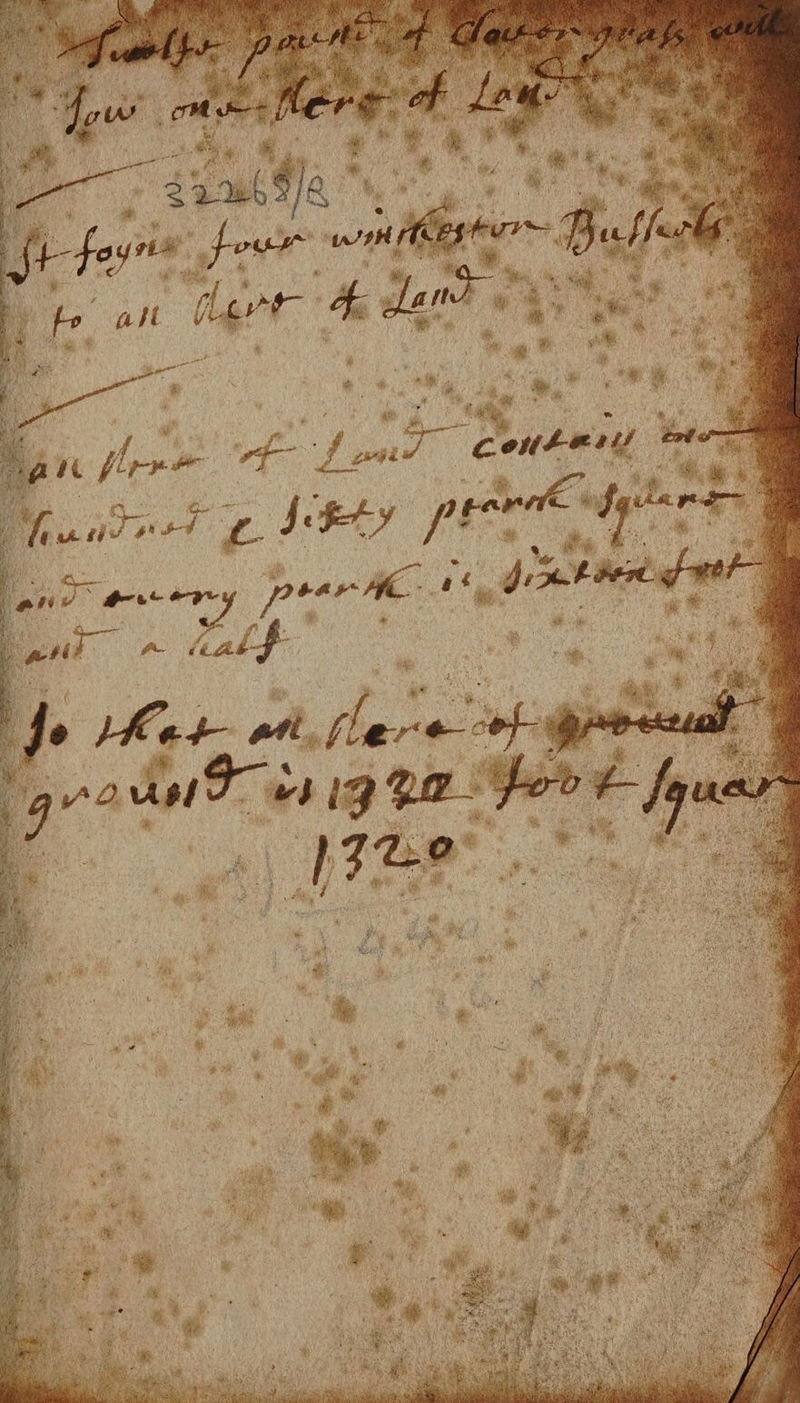 Twelfe pound of Clover grass will
sow one Acre of Land
32268/B
St foyne four winchester Bushels
to an Acre of Land
an Acre of Land contain one
hundred & sixty pearch square
and euery pearch is sixteen foot
and a half
so that an Acre of ground
ground is 1320 foot squar
1320